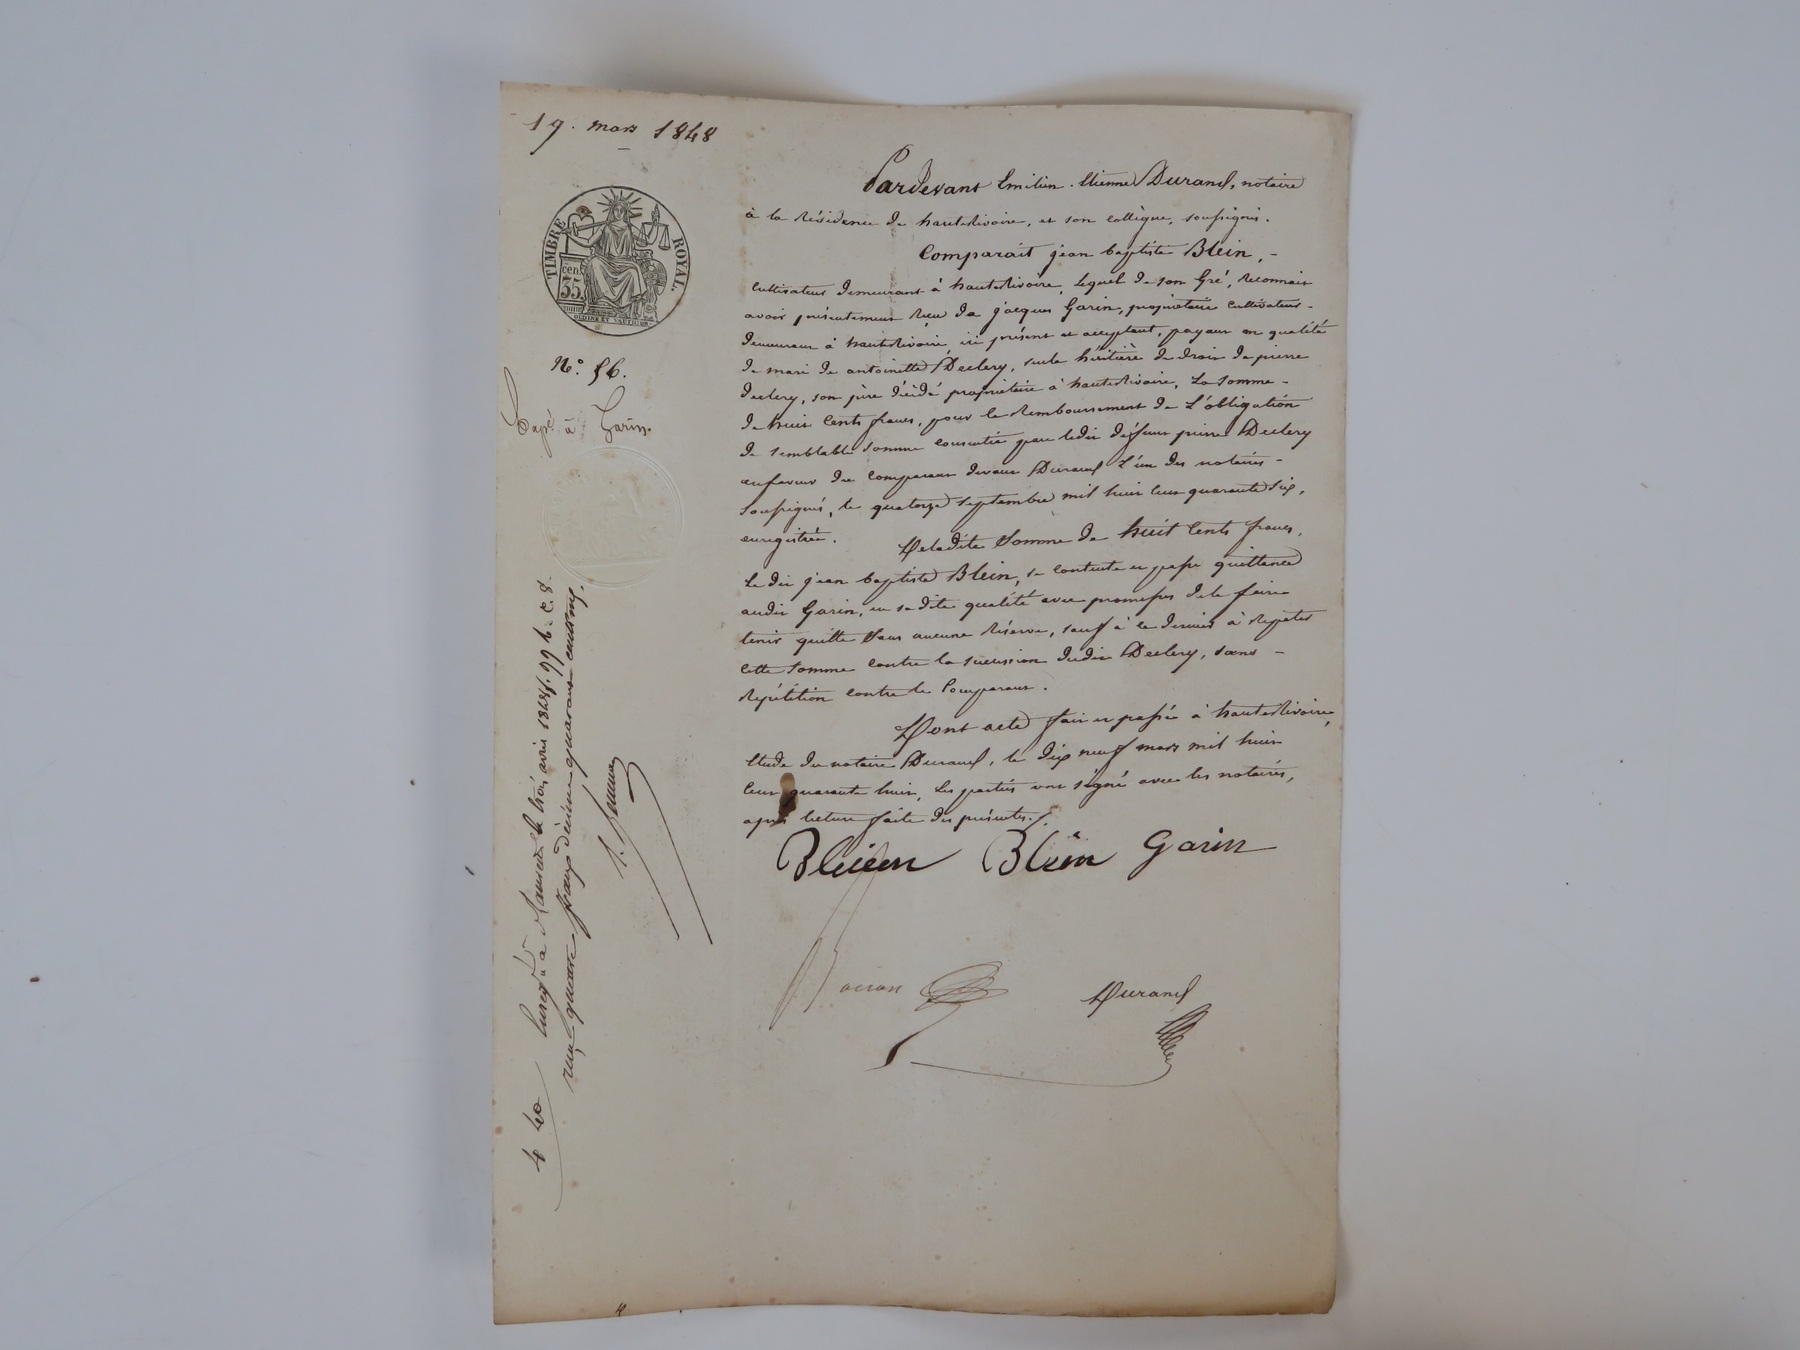 19. mars 1848
TIMBRE ROYAL.
cen.
35.
N.º 56.
Expé à Garin.
Pardevant Emilien. Etienne Durand, notaire
à la résidence de hauterivoire, et son collègue, soussignés.
Comparait jean baptiste Blein, -
Cultivateur demeurant à hauterivoire, Lequel de son Gré, Reconnait
avoir présentement reçu de jacques Garin, propriétaire cultivateur -
demeurant à hauterivoire ici présent et acceptant, payant en qualité
de mari de antoinette Declery, seule héritière de droit de pierre
declery, son père décédé propriétaire à hauterivoire, La somme -
de huit Cents francs, pour le Remboursement de L'obligation
de semblable somme consentie par ledit défunt pierre Declery
enfaveur du Comparant devant Durand L'un des notaires -
soussignés, le quatorze septembre mil huit cent quarante six,
enregistrée.
Deladite somme de huit Cents francs,
Le dit jean baptiste Blein, se contente et passe quittance
audit Garin, en sadite qualité avec promesse de le faire
tenir quitte sans aucune Réserve, sauf à ce dernier à Répéter
cette somme contre la succession dudit Declery, sans -
Répétition contre le Comparant.
Dont acte fait et passé à hauterivoire,
Etude du notaire Durand, le dix neuf mars mil huit
Cent quarante huit, Les parties ont signé avec les notaires,
après lecture faite des présentes./.
Bleien Blein Garin
Durand
4 40
à le trois avril 1848 f. 99 R. C. 8.
reçu quatre francs décime quarante centimes.